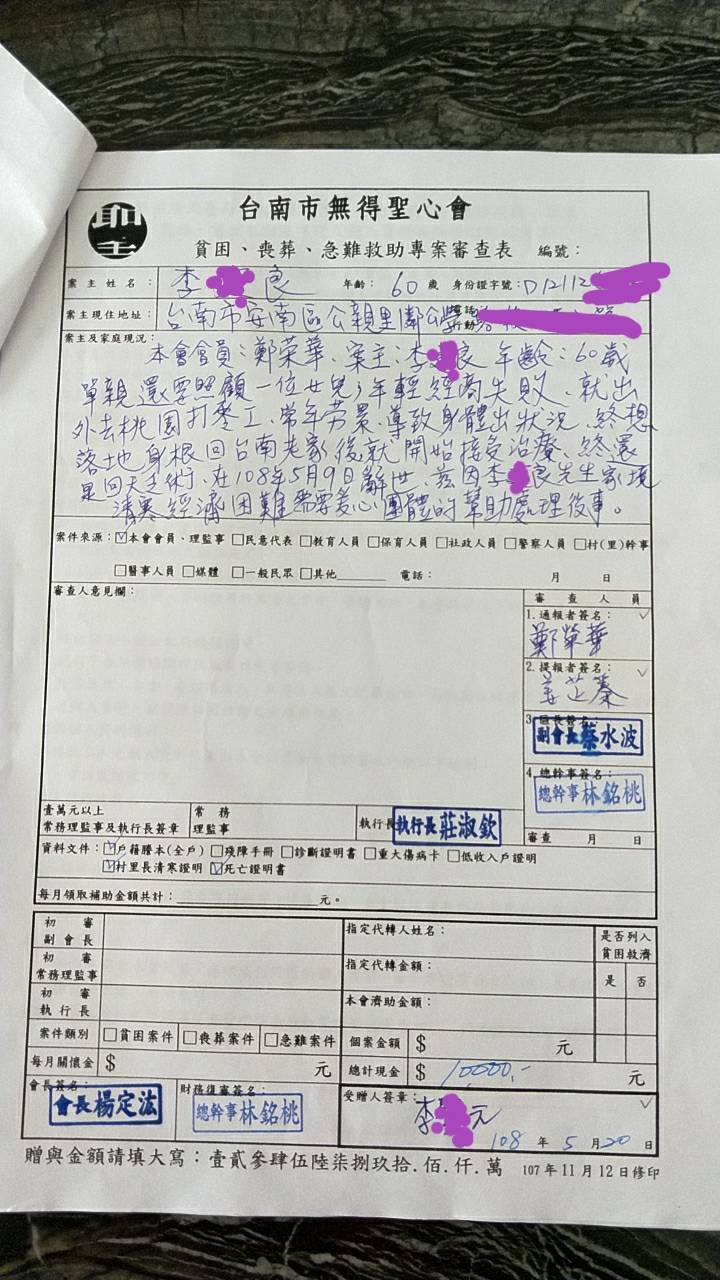 台南市無得聖心會
貧困、喪葬、急難救助專案審查表 編號：
案主姓名： 李 良 年齡： 60 歲 身份證字號： D12112
案主現住地址： 台南市安南區公親里鄰公學 電話 行動
案主及家庭現況：
本會會員：鄭榮華、案主：李 良 年齡：60歲
單親還要照顧一位女兒，年輕經商失敗、就出
外去桃園打零工、常年勞累、導致身體出狀況、終想
落地身根回台南老家後就開始接受治療、終還
是回天乏術、在108年5月9日辭世、茲因李 良先生家境
清寒經濟困難需要愛心團體的幫助處理後事。
案件來源：☑本會會員、理監事 □民意代表 □教育人員 □保育人員 □社政人員 □警察人員 □村(里)幹事
□醫事人員 □媒體 □一般民眾 □其他 電話： 月 日
審查人意見欄： 審查人員
1.通報者簽名： ✓
鄭榮華
2.提報者簽名： ✓
姜芷蓁
3.區長簽名：
副會長蔡水波
4.總幹事簽名：
總幹事林銘桃
壹萬元以上 常務理監事及執行長簽章 常務理監事 執行長 執行長莊淑欽 審查 月 日
資料文件：☑戶籍謄本(全戶) □殘障手冊 □診斷證明書 □重大傷病卡 □低收入戶證明
☑村里長清寒證明 ☑死亡證明書
每月領取補助金額共計： 元。
初審 副會長 指定代轉人姓名： 是否列入貧困救濟
初審 常務理監事 指定代轉金額： 是 否
初審 執行長 本會濟助金額：
案件類別 □貧困案件 □喪葬案件 □急難案件 個案金額 $ 元
每月關懷金 $ 元 總計現金 $ 10,000.- 元
會長簽名： 會長楊定法 財務復審簽名： 總幹事林銘桃 受贈人簽章： 李 元 ✓
108 年 5 月 20 日
贈與金額請填大寫：壹貳參肆伍陸柒捌玖拾.佰.仟.萬 107年11月12日修印